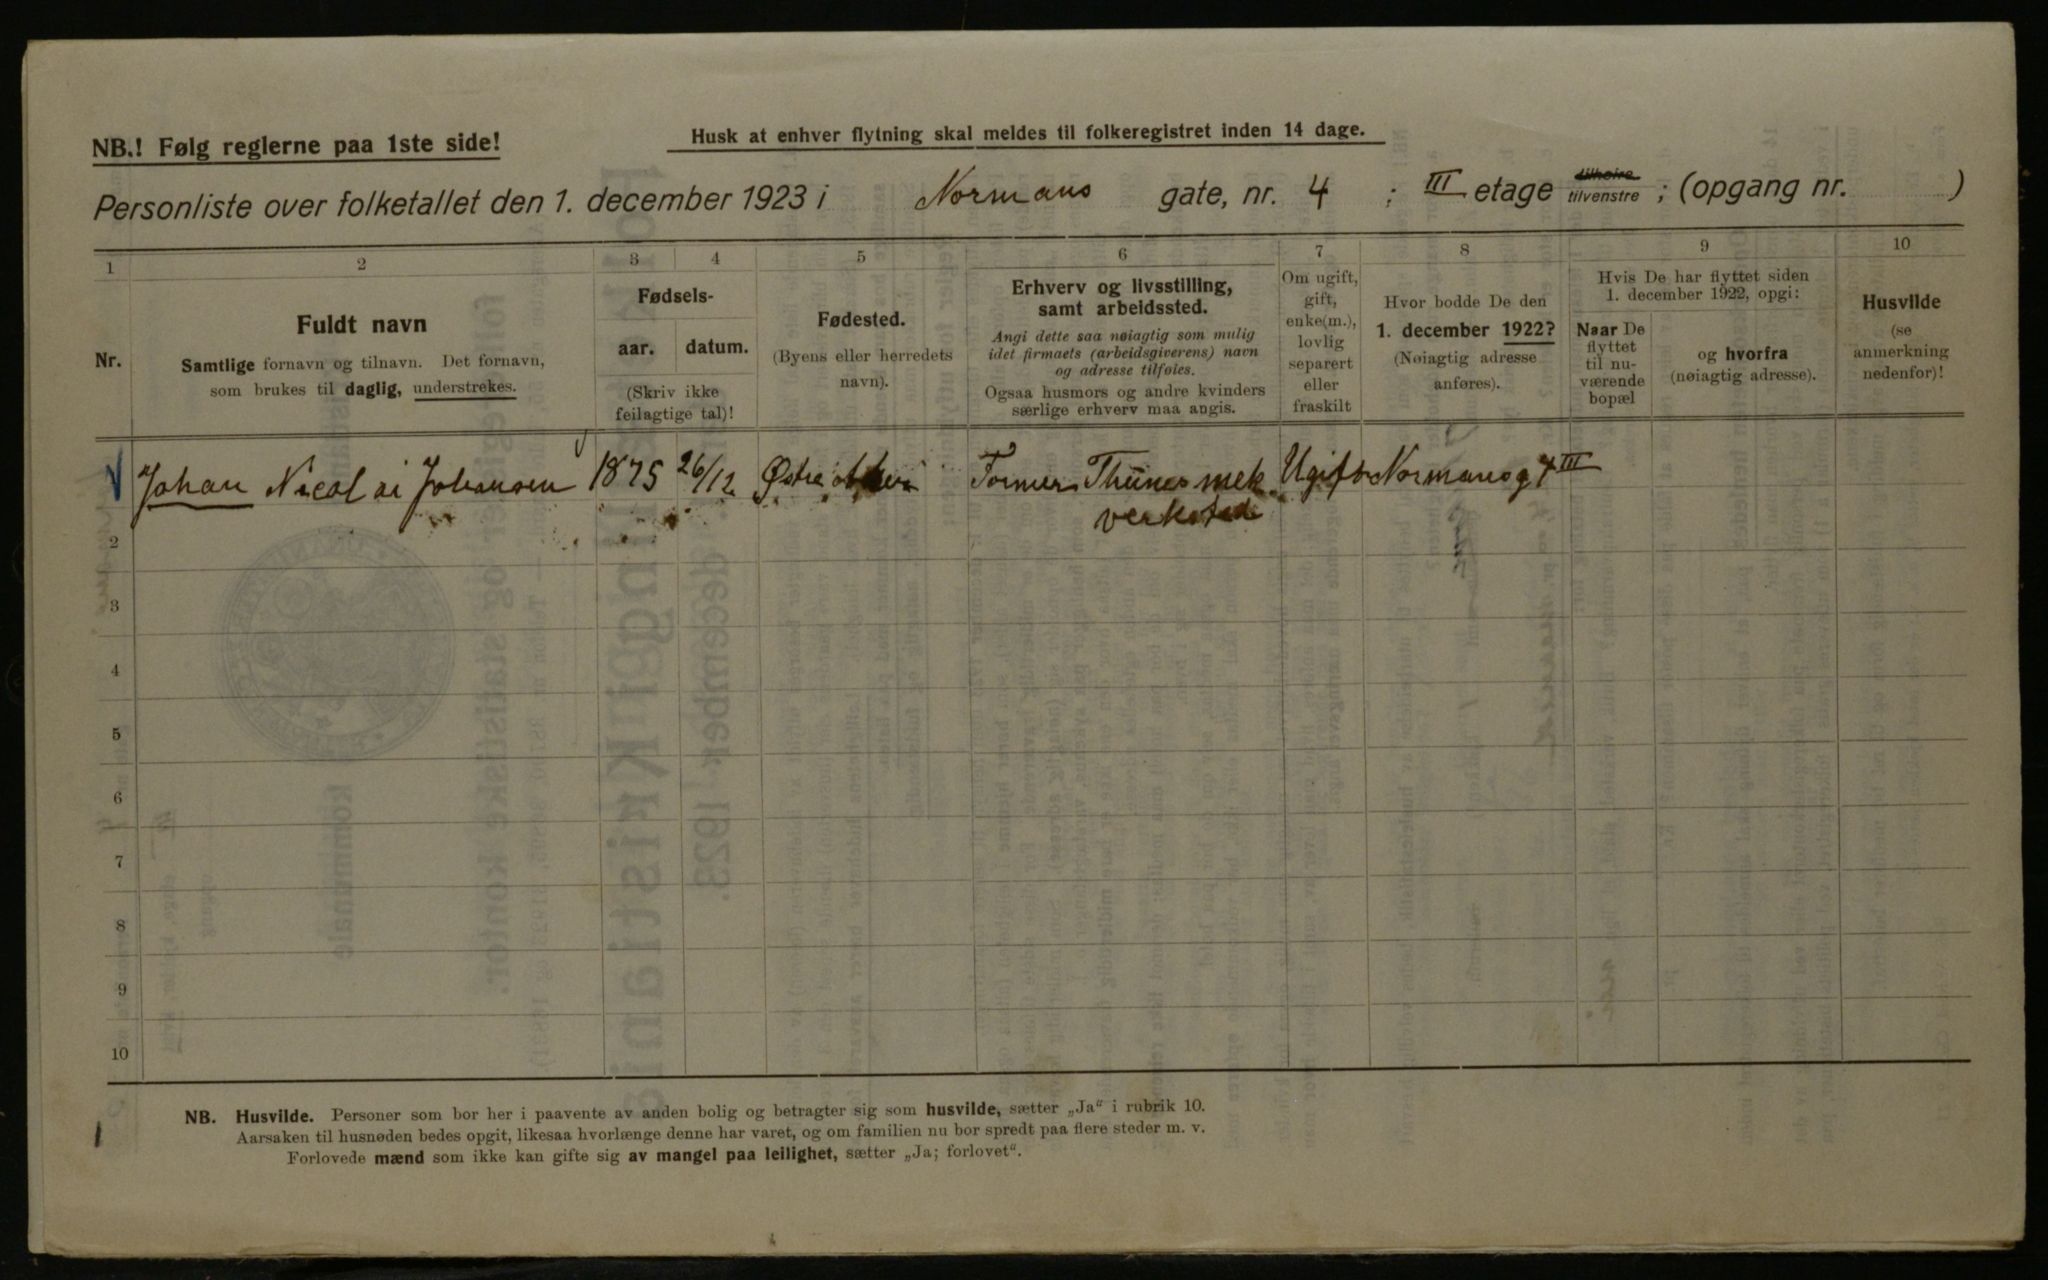 NB.! Følg reglerne paa 1ste side!
Husk at enhver flytning skal meldes til folkeregistret inden 14 dage.
Personliste over folketallet den 1. december 1923 i Normans gate, nr. 4 ; III etage tilhøire tilvenstre ; (opgang nr. )
1 2 3 4 5 6 7 8 9 10
Nr.
Fuldt navn
Samtlige fornavn og tilnavn. Det fornavn,
som brukes til daglig, understrekes.
Fødsels-
aar. datum.
(Skriv ikke
feilagtige tal)!
Fødested.
(Byens eller herredets
navn).
Erhverv og livsstilling,
samt arbeidssted.
Angi dette saa nøiagtig som mulig
idet firmaets (arbeidsgiverens) navn
og adresse tilføies.
Ogsaa husmors og andre kvinders
særlige erhverv maa angis.
Om ugift,
gift,
enke(m.),
lovlig
separert
eller
fraskilt
Hvor bodde De den
1. december 1922?
(Nøiagtig adresse
anføres).
Hvis De har flyttet siden
1. december 1922, opgi:
Naar De
flyttet
til nu-
værende
bopæl
og hvorfra
(nøiagtig adresse).
Husvilde
(se
anmerkning
nedenfor)!
Johan Nicolai Johansen 1875 26/12 Østre Former Thünes mek Ugift Normansg 4 III
verksted
2
3
4
5
6
7
8
9
10
NB. Husvilde. Personer som bor her i paavente av anden bolig og betragter sig som husvilde, sætter „Ja“ i rubrik 10.
Aarsaken til husnøden bedes opgit, likesaa hvorlænge denne har varet, og om familien nu bor spredt paa flere steder m. v.
Forlovede mænd som ikke kan gifte sig av mangel paa leilighet, sætter „Ja; forlovet“.
1